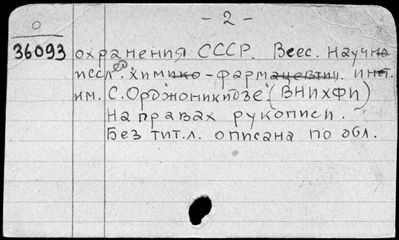 - 2 -
О
36093 охранения СССР. Всес. научно
иссл. химико-фармацевтич. инст.
им. С. Орджоникидзе. (ВНИХФИ)
На правах рукописи.
Без тит.л. описана по обл.